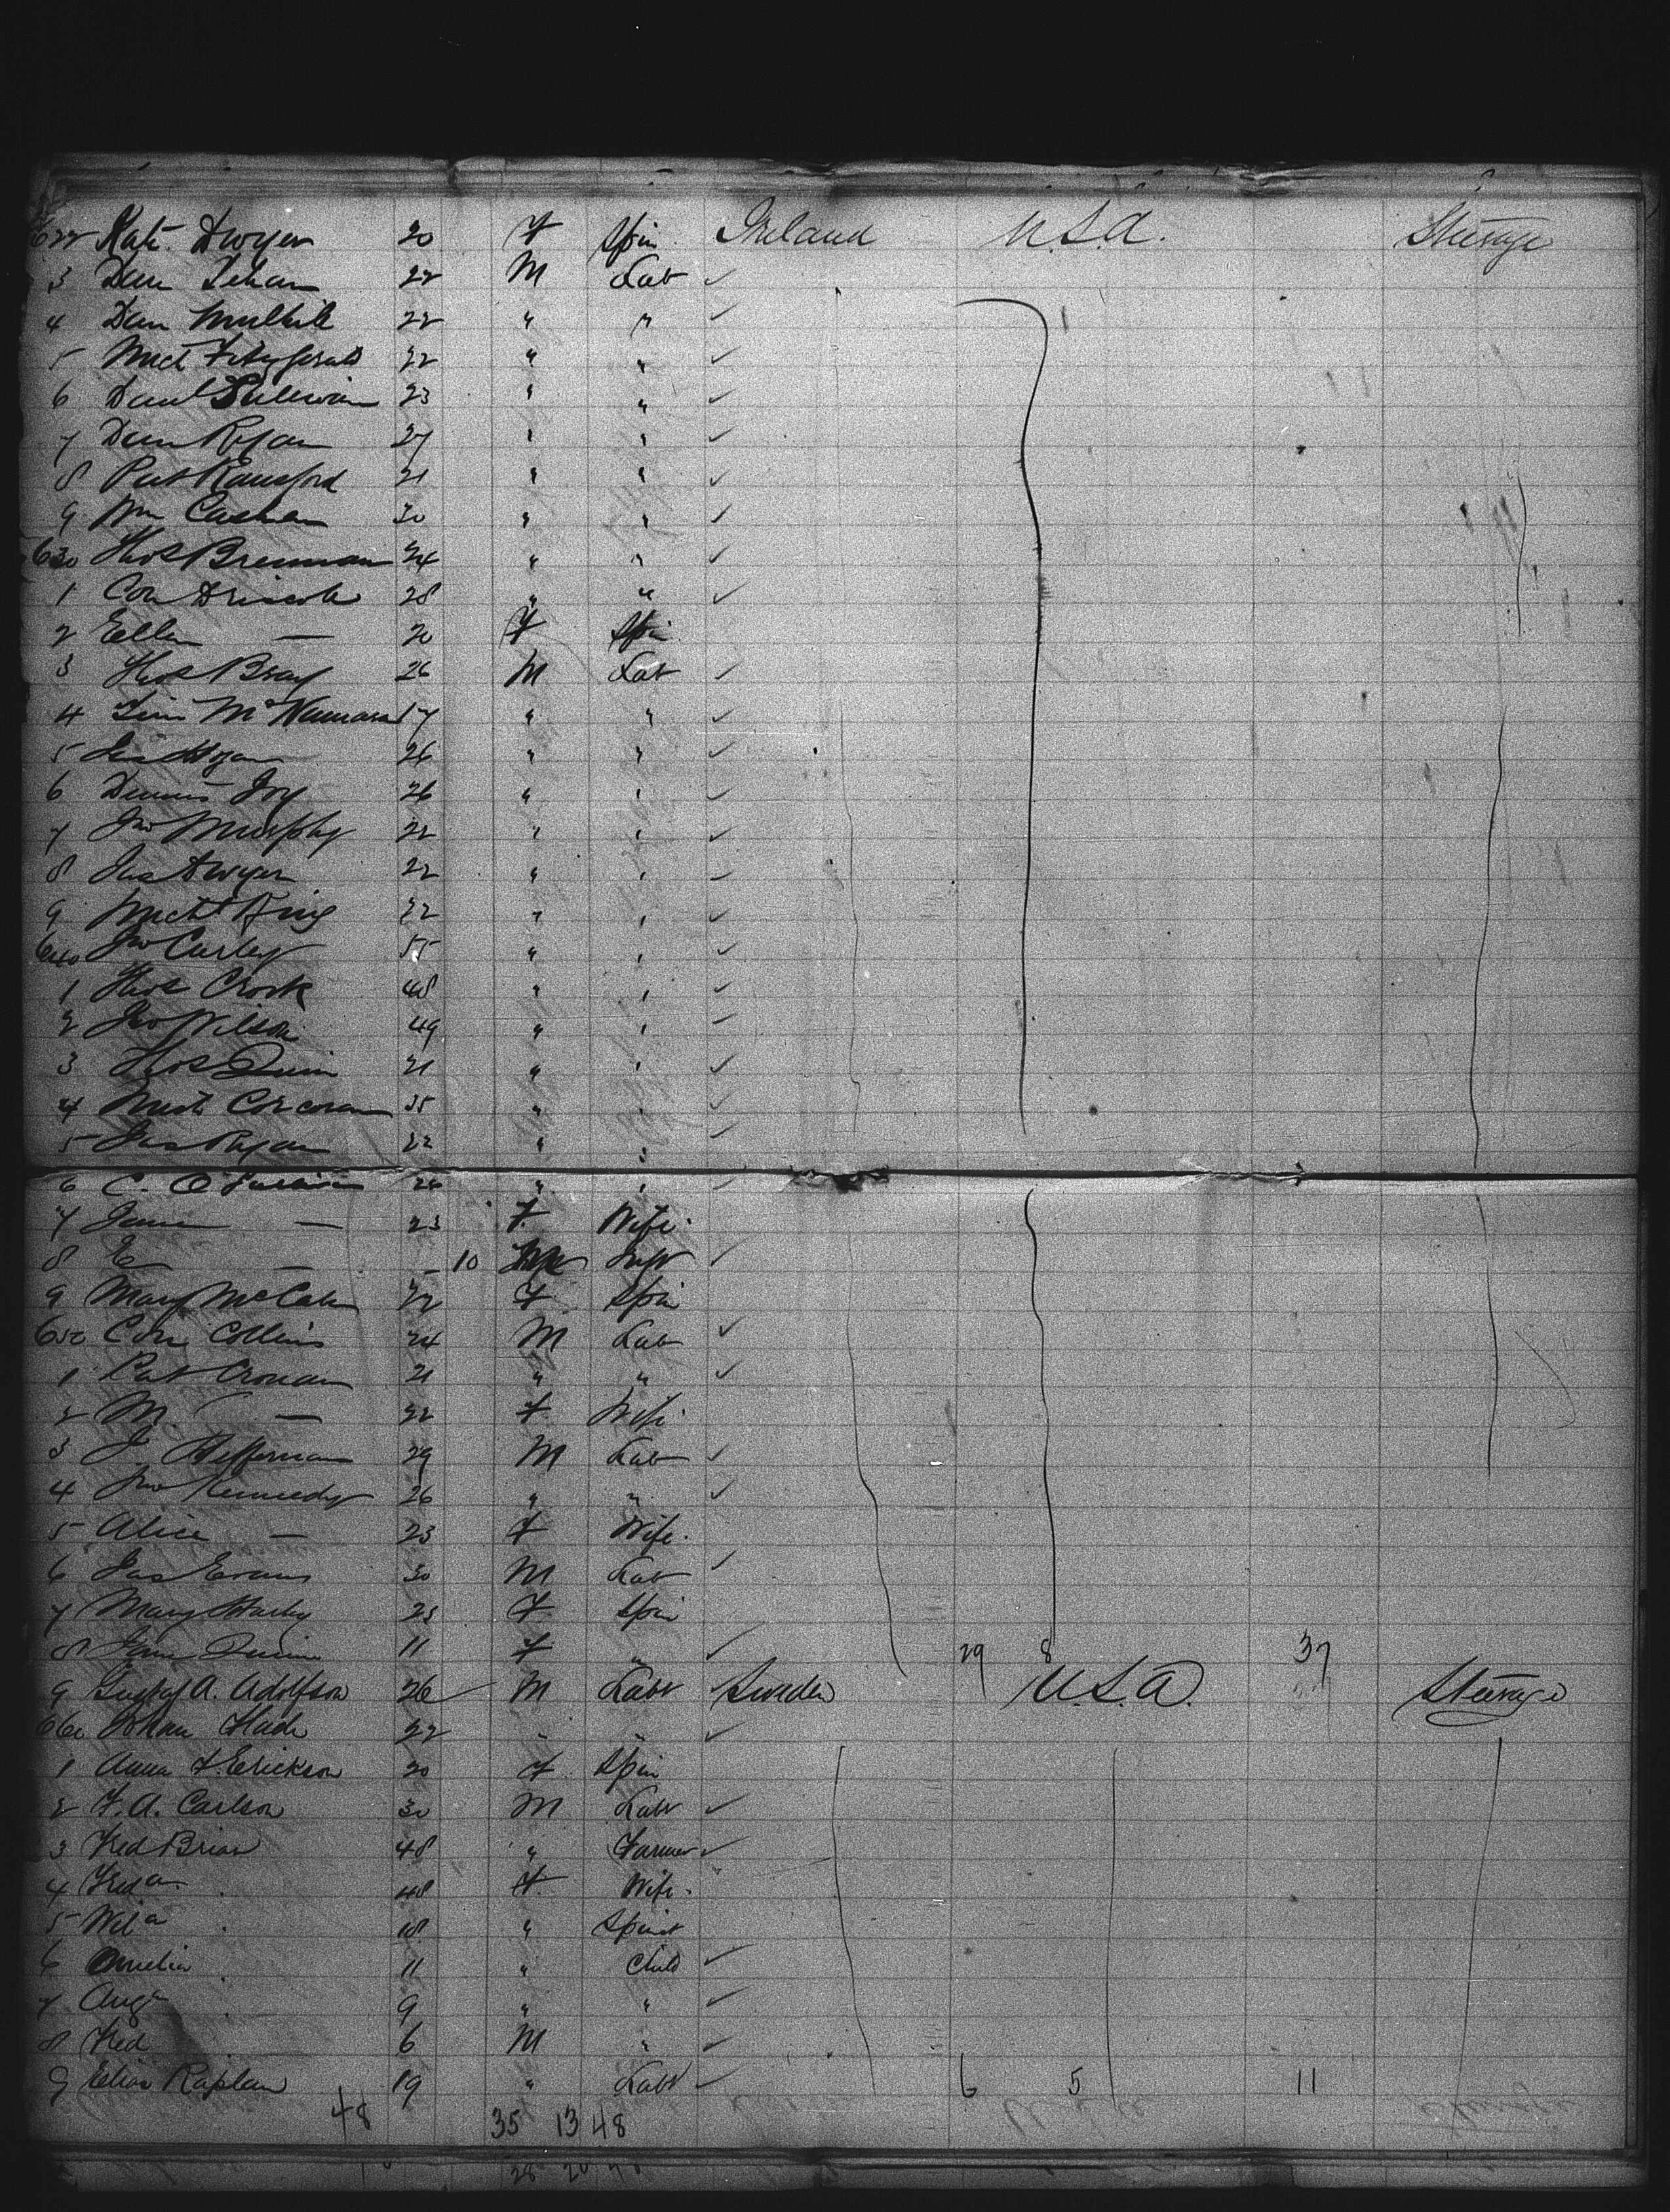 622 Kate Dwyer 20 F Spin Ireland U.S.A. Steerage
3 Dan Lehan 22 M Lab ✓
4 Dan Mulhill 22 " " ✓
5 Mich Fitzgerald 22 " " ✓
6 Danl Sullivan 23 " " ✓
7 Dan Ryan 27 " " ✓
8 Pat Ransford 21 " " ✓
9 Wm Cashen 30 " " ✓
630 Thos Brennan 24 " " ✓
1 Con Driscoll 28 " " ✓
2 Ellen — 20 F Spin
3 Thos Bray 26 M Lab ✓
4 Tim McNamara 17 " " ✓
5 Hogan 26 " " ✓
6 Dennis Joy 26 " " ✓
7 Jno Murphy 22 " " ✓
8 Jas Dwyer 22 " " ✓
9 Michl King 22 " " ✓
640 Jno Curley 55 " " ✓
1 Thos Crosk 48 " " ✓
2 Jno Wilson 49 " " ✓
3 Thos Quin 21 " " ✓
4 Mich Corcoran 35 " " ✓
5 Jas Ryan 22 " " ✓
6 C. O'Sullivan 26 " " ✓
7 Jane — 23 F Wife
8 E — 10 Inft ✓
9 Mary McCabe 22 F Spin
650 Con Collins 24 M Lab ✓
1 Pat Cronan 21 " " ✓
2 M. — 22 F Wife
3 J. Heffernan 29 M Lab ✓
4 Jno Kennedy 26 " " ✓
5 Alice — 23 F Wife
6 Jas Evans 30 M Lab ✓
7 Mary Harty 23 F Spin
8 Jane Quinn 11 F " ✓ 29 8 37
9 Gustaf A. Adolfson 26 M Labr Sweden U.S.A. Steerage
660 Johan 22 " " ✓
1 Anna L. Erickson 20 F Spin
2 F. A. Carlson 30 M Labr ✓
3 Fred Brian 48 " Farmer ✓
4 Freda 48 F Wife
5 Wila 18 " Spinst
6 Amelia 11 " Child ✓
7 Aug 9 " " ✓
8 Fred 6 M " ✓
9 Elias Kaplan 19 " Labr ✓ 6 5 11
48 35 13 48
28 20 48